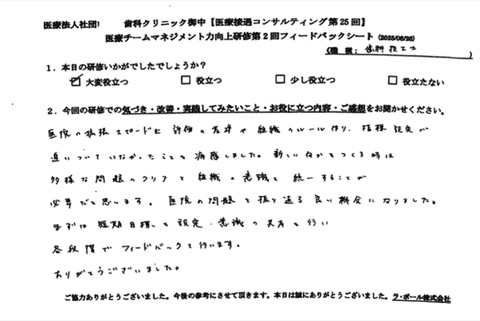 医療法人社団 歯科クリニック御中【医療接遇コンサルティング第25回】
医療チームマネジメント力向上研修第2回フィードバックシート(2025/06/26)
(職種:歯科技工士)
1.本日の研修いかがでしたでしょうか?
☑大変役立つ □役立つ □少し役立つ □役立たない
2.今回の研修での気づき・改善・実践してみたいこと・お役に立つ内容・ご感想をお聞かせください。
医院の拡張スピードに評価の基準や組織のルール作り、指標設定が
追いついていなかったことを痛感しました。新しい
多様な問題のクリアと組織の意識を統一することが
必要だと思います。医院の問題を振り返る良い機会になりました。
まずは短期目標を設定、意識の共有を行い
各段階でフィードバックを行います。
ありがとうございました。
ご協力ありがとうございました。今後の参考にさせて頂きます。本日は誠にありがとうございました。ラ・ポール株式会社